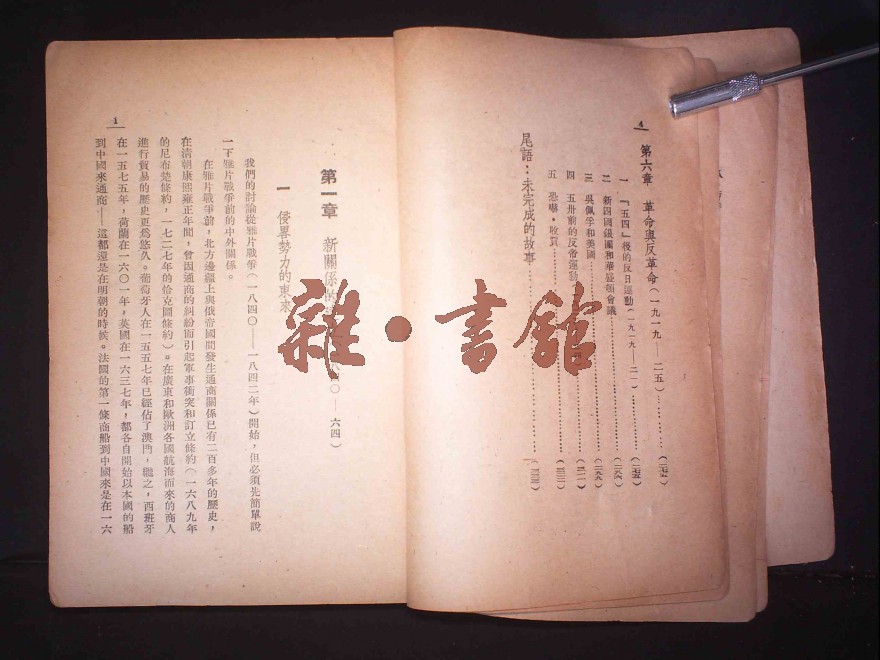 4
第六章　革命與反革命（一九一九—二五）
一　『五四』後的反日運動（一九一九—二一）
二　新四國銀團和華盛頓會議
三　吳佩孚和美國
四　五卅前的反帝運動
五　恐嚇·收買
尾語：未完成的故事
1
第一章　新關係的 四〇—六四）
一　侵畧勢力的東來
我們的討論從雅片戰爭（一八四〇—一八四二年）開始，但必須先簡單說
一下雅片戰爭前的中外關係。
在雅片戰爭前，北方邊疆上與俄帝國間發生通商關係已有二百多年的歷史，
在清朝康熙雍正年間，曾因通商的糾紛而引起軍事衝突和訂立條約（一六八九年
的尼布楚條約，一七二七年的恰克圖條約）。在廣東和歐洲各國航海而來的商人
進行貿易的歷史更為悠久。葡萄牙人在一五五七年已經佔了澳門，繼之，西班牙
在一五七五年，荷蘭在一六〇一年，英國在一六三七年，都各自開始以本國的船
到中國來通商——這都還是在明朝的時候。法國的第一條商船到中國來是在一六
雜·書館